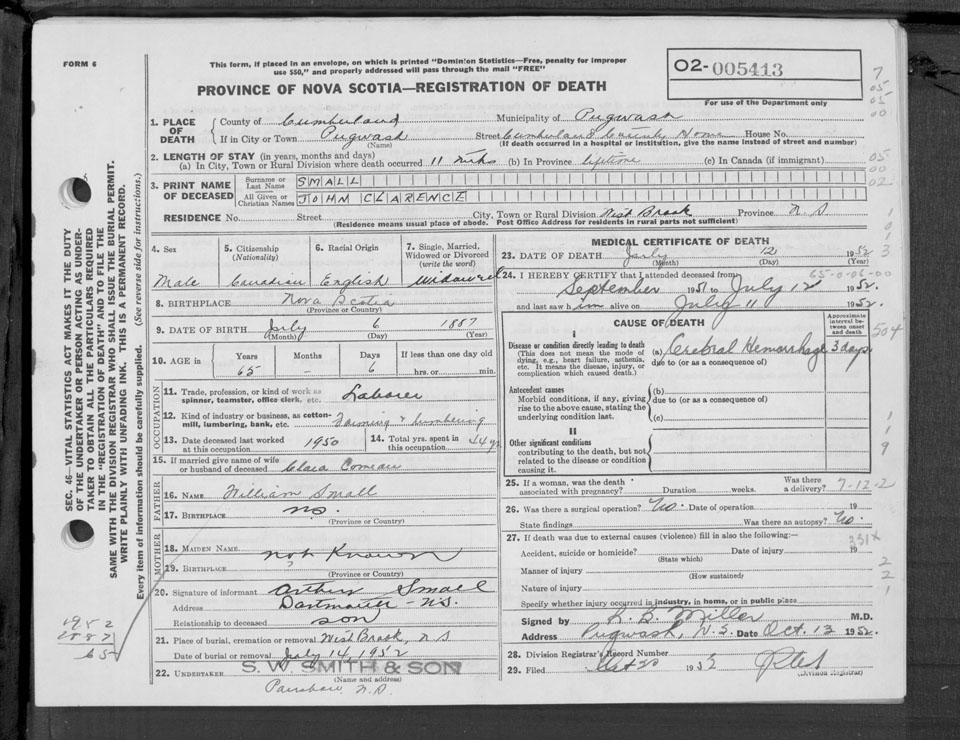 FORM 6
This form, if placed in an envelope, on which is printed "Dominion Statistics—Free, penalty for improper
use $50," and properly addressed will pass through the mail "FREE"
PROVINCE OF NOVA SCOTIA—REGISTRATION OF DEATH
02-005413
For use of the Department only
7
05-
05-
00
05
00
02
1. PLACE OF DEATH
County of Cumberland Municipality of Pugwash
If in City or Town Pugwash Street Cumberland County Home House No.
(Name) (If death occurred in a hospital or institution, give the name instead of street and number)
2. LENGTH OF STAY (in years, months and days)
(a) In City, Town or Rural Division where death occurred 11 mths (b) In Province lifetime (c) In Canada (if immigrant)
3. PRINT NAME OF DECEASED
Surname or Last Name SMALL
All Given or Christian Names JOHN CLARENCE
RESIDENCE No. Street City, Town or Rural Division West Brook Province N.S
(Residence means usual place of abode. Post Office Address for residents in rural parts not sufficient)
4. Sex
Male
5. Citizenship (Nationality)
Canadian
6. Racial Origin
English
7. Single, Married, Widowed or Divorced (write the word)
Widowed
8. BIRTHPLACE Nova Scotia
(Province or Country)
9. DATE OF BIRTH July 6 1887
(Month) (Day) (Year)
10. AGE in Years Months Days If less than one day old
65 – 6 hrs. or min.
OCCUPATION
11. Trade, profession, or kind of work as spinner, teamster, office clerk, etc. Laborer
12. Kind of industry or business, as cotton-mill, lumbering, bank, etc. Farming & lumbering
13. Date deceased last worked at this occupation 1950
14. Total yrs. spent in this occupation 44 yr
15. If married give name of wife or husband of deceased Clara Comeau
FATHER
16. NAME William Small
17. BIRTHPLACE N.S.
(Province or Country)
MOTHER
18. MAIDEN NAME Not Known
19. BIRTHPLACE
(Province or Country)
20. Signature of informant Arthur Small
Address Dartmouth - N.S.
Relationship to deceased son
21. Place of burial, cremation or removal West Brook, N S
Date of burial or removal July 14, 1952
22. UNDERTAKER S. W. SMITH & SON
(Name and address)
Parrsboro N.S
MEDICAL CERTIFICATE OF DEATH
23. DATE OF DEATH July 12 1952
(Month) (Day) (Year)
24. I HEREBY CERTIFY that I attended deceased from
65-0-06-00
September 1951 to July 12 1952.
and last saw him alive on July 11 1952.
CAUSE OF DEATH
Approximate interval between onset and death
I
Disease or condition directly leading to death
(This does not mean the mode of dying, e.g., heart failure, asthenia, etc. It means the disease, injury, or complication which caused death.)
(a) Cerebral Hemorrhage 3 days
due to (or as a consequence of)
504
Antecedent causes
Morbid conditions, if any, giving rise to the above cause, stating the underlying condition last.
(b)
due to (or as a consequence of)
(c)
II
Other significant conditions
contributing to the death, but not related to the disease or condition causing it.
25. If a woman, was the death associated with pregnancy? Duration weeks. Was there a delivery?
7-12-2
26. Was there a surgical operation? No. Date of operation 19
State findings Was there an autopsy? No.
27. If death was due to external causes (violence) fill in also the following:—
331x
Accident, suicide or homicide? Date of injury 19
(State which)
Manner of injury
(How sustained)
Nature of injury
Specify whether injury occurred in industry, in home, or in public place
Signed by R. B. Miller M.D.
Address Pugwash, N.S. Date Oct. 13 1952.
28. Division Registrar's Record Number
29. Filed Oct 20 1952
(Division Registrar)
SEC. 46—VITAL STATISTICS ACT MAKES IT THE DUTY
OF THE UNDERTAKER OR PERSON ACTING AS UNDER-
TAKER TO OBTAIN ALL THE PARTICULARS REQUIRED
IN THE "REGISTRATION OF DEATH" AND TO FILE THE
SAME WITH THE DIVISION REGISTRAR WHO SHALL ISSUE THE BURIAL PERMIT.
WRITE PLAINLY WITH UNFADING INK. THIS IS A PERMANENT RECORD.
Every item of information should be carefully supplied. (See reverse side for instructions.)
1952
1887
65